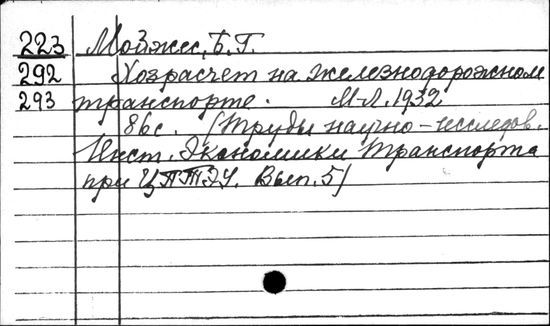 223 Мойжес, Б.Г.
292 Хозрасчет на железнодорожном
293 транспорте. М-Л. 1932
86с. (Труды научно-исследов.
Инст. Экономики Транспорта
при ЦПТЭУ. Вып. 5)